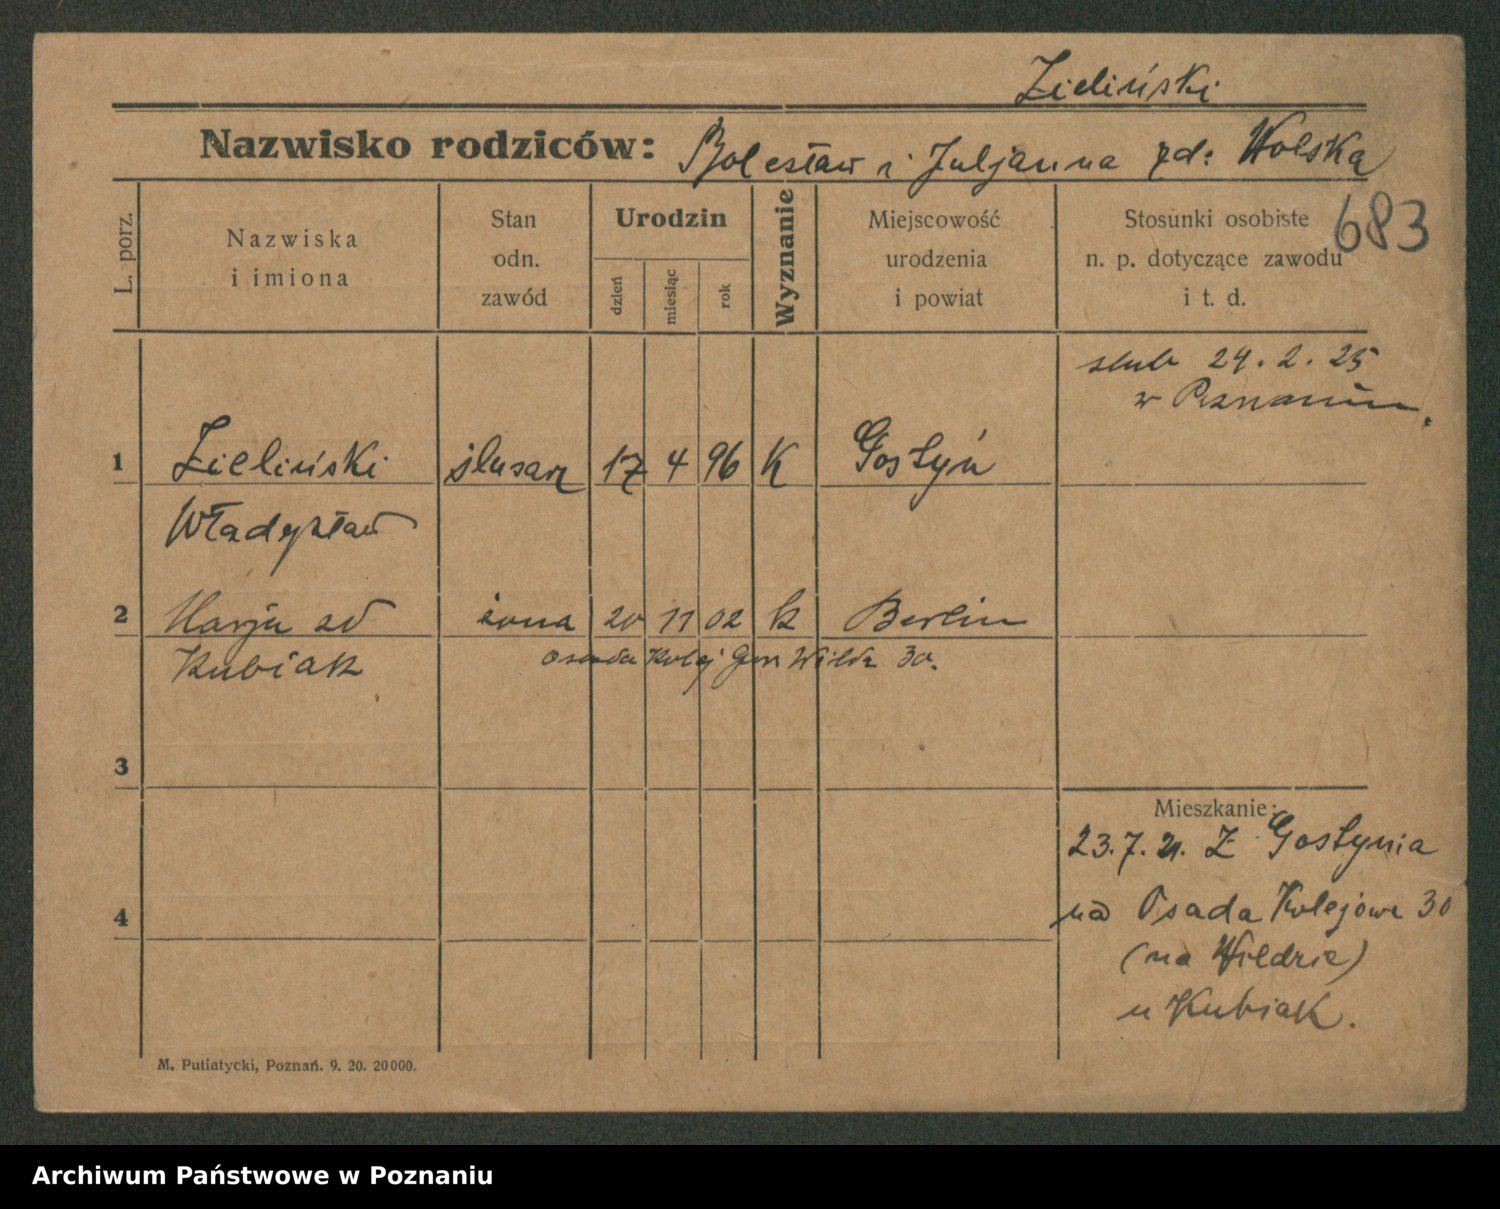 Zieliński
Nazwisko rodziców: Bolesław i Juljanna zd: Wolska
683
L. porz.
Nazwiska
i imiona
Stan
odn.
zawód
Urodzin
dzień
miesiąc
rok
Wyznanie
Miejscowość
urodzenia
i powiat
Stosunki osobiste
n. p. dotyczące zawodu
i t. d.
ślub 24. 2. 25
w Poznaniu.
1 Zieliński ślusarz 17 4 96 K Gostyń
Władysław
2 Marja zd żona 20 11 02 k Berlin
Kubiak Osada Kolej Gen Wilda 30.
3
4
Mieszkanie:
23. 7. 21. Z Gostynia
na Osada Kolejowa 30
(na Wildzie)
u Kubiak.
M. Putiatycki, Poznań. 9. 20. 20000.
Archiwum Państwowe w Poznaniu